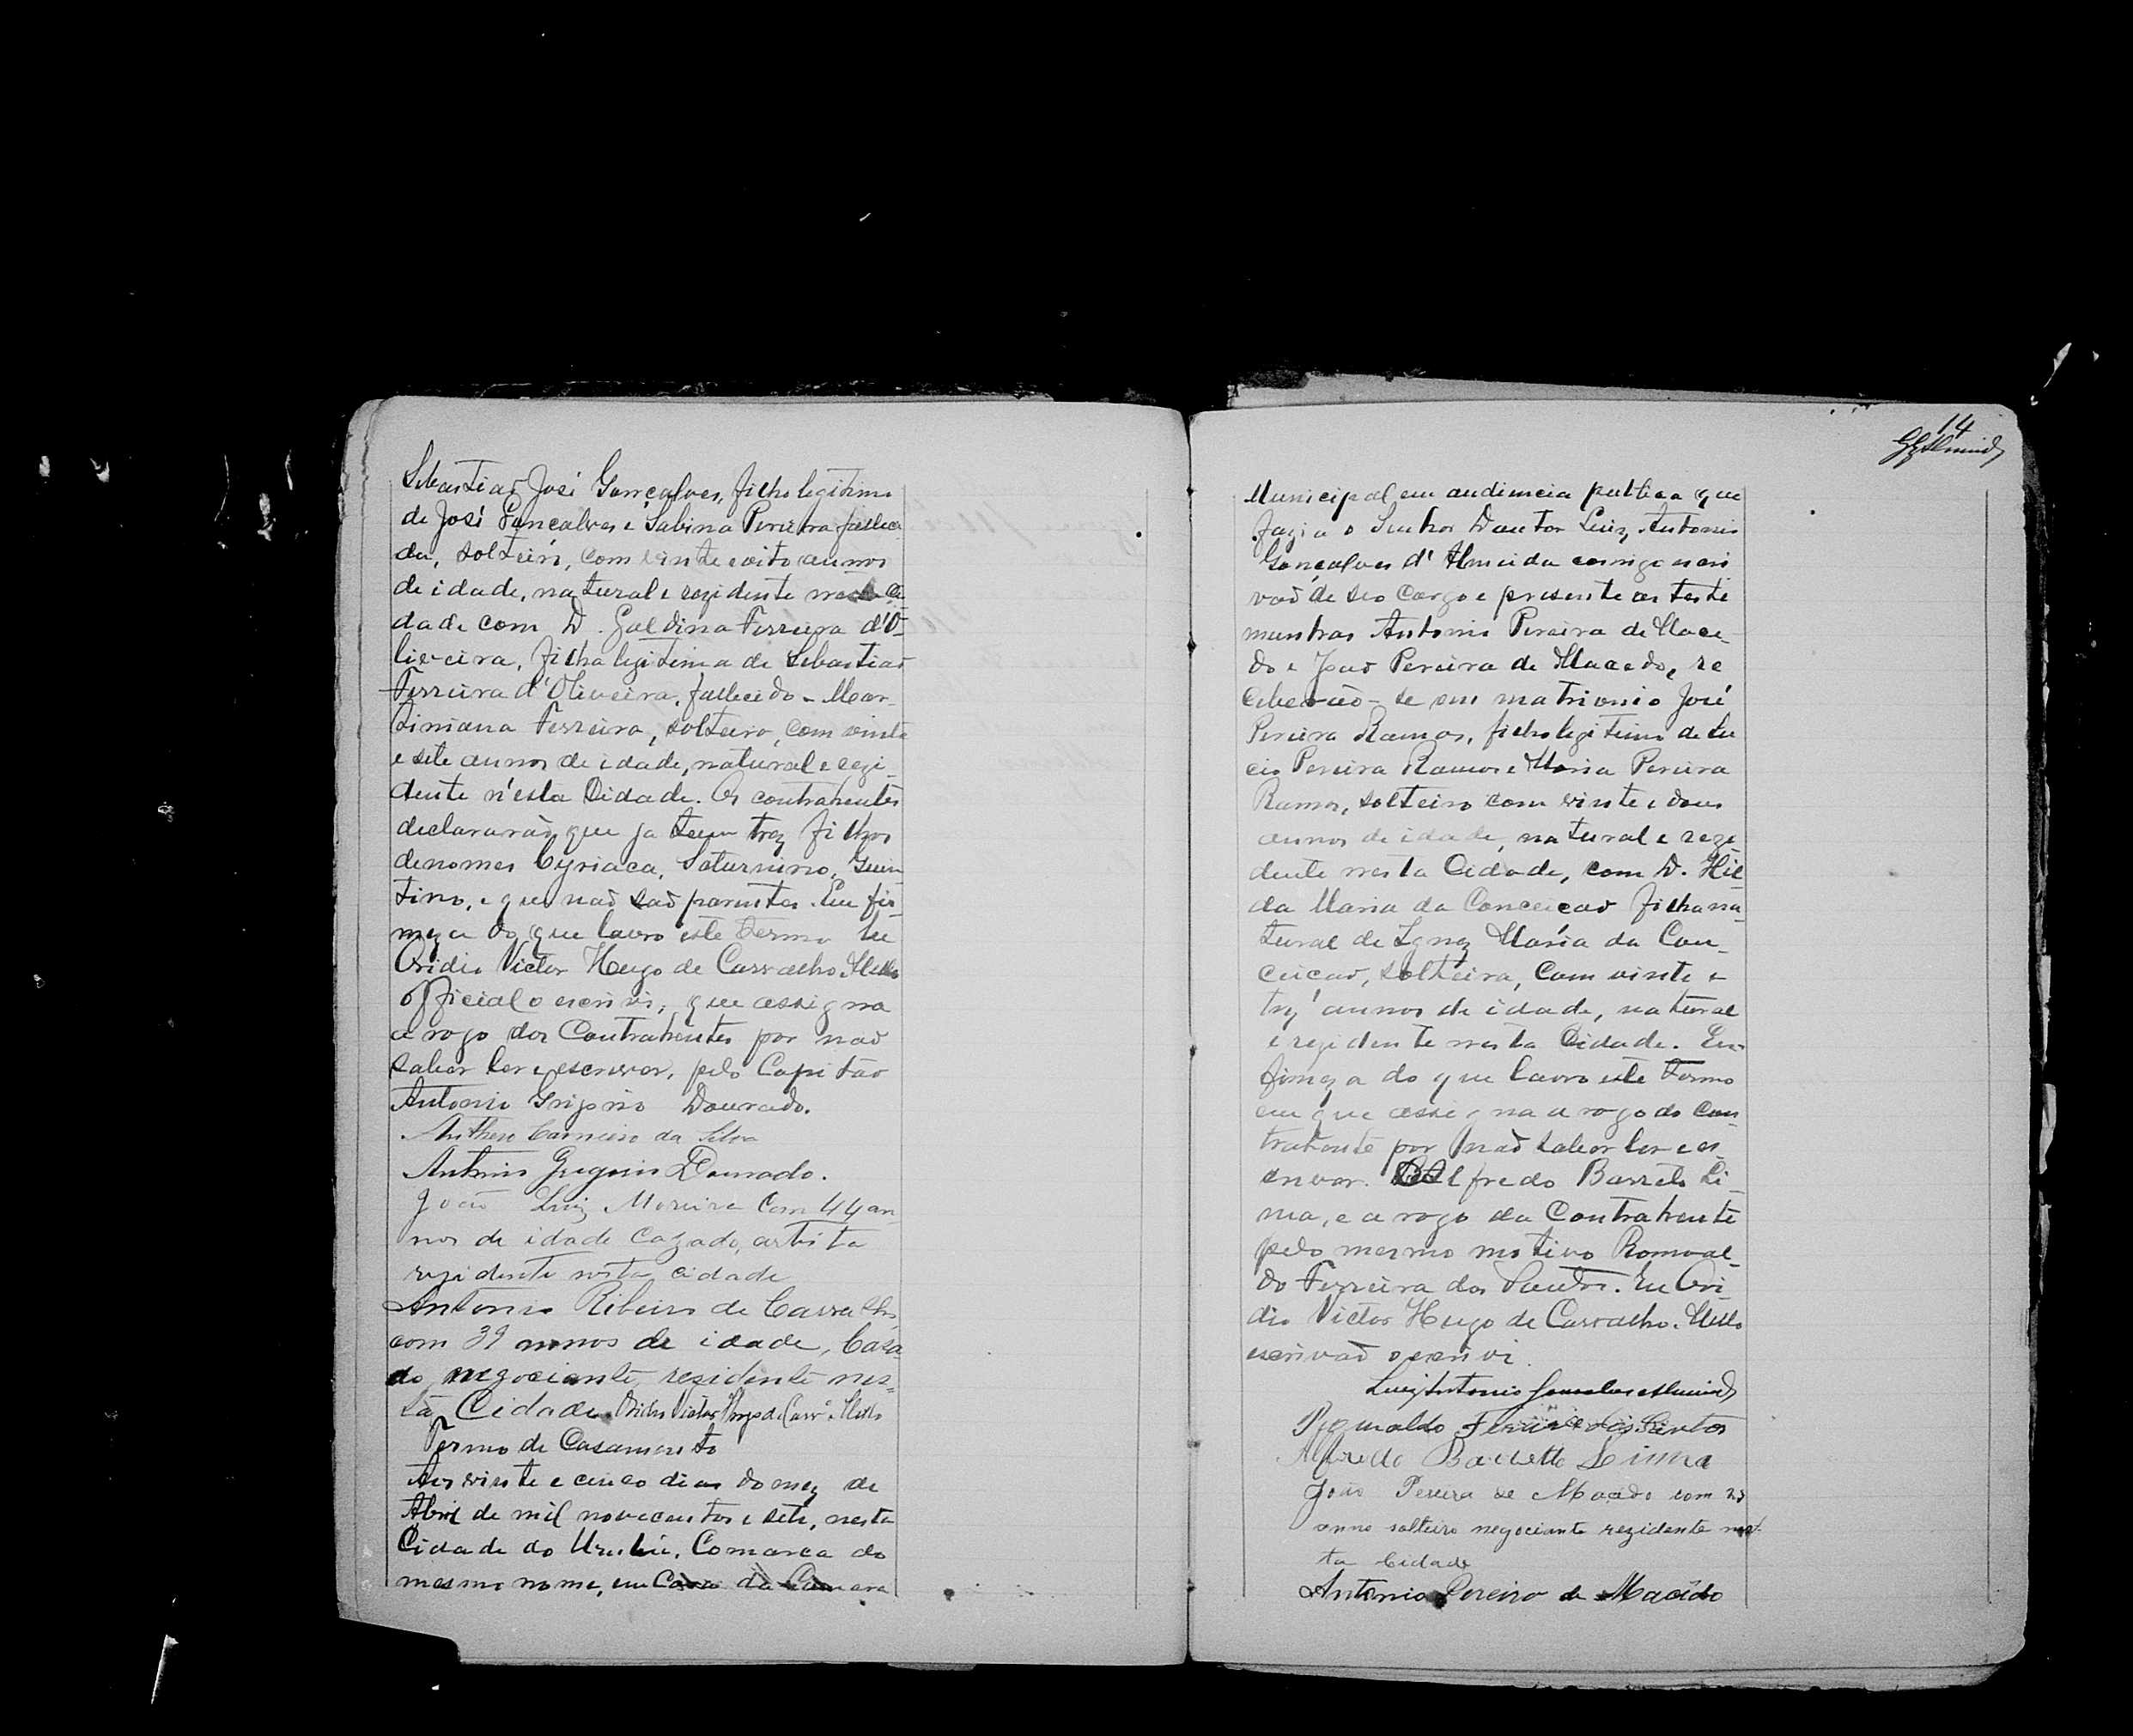 Sebastiaõ José Gonçalves, filho legitimo
de José Goncalves e Sabina Pereira falleci
da, solteiro, com vinte e oito annos
de idade, natural e rezidente nesta Ci-
dade com D. Galdina Ferreira d'O-
liveira, filha legitima de Sebastiaõ
Ferreira d'Oliveira, fallecido e Mar-
tiniana Ferreira, solteira, com vinte
e sete annos de idade, natural e rezi-
dente n'esta Cidade. Os contrahentes
declararaõ que ja teem trez filhos
de nomes Cyriaca, Saturnino, Quin-
tino, e que naõ saõ parentes. Em fir-
meza do que lavro este termo Eu
Ovidio Victor Hugo de Carvalho Mello
official o escrivi, que assigna
a rogo dos Contrahentes por naõ
saber ler e escrever, pelo Capitão
Antonio Grigorio Dourado.
Anthero Carneiro da Silva
Antonio Gregorio Dourado.
João Luiz Moreira Com 44 an-
nos de idade Cazado, artista
rezidente nesta cidade
Antonio Ribeiro de Carvalho
com 39 annos de idade, Casa-
do, negociante, rezidente nes-
ta Cidade. Ovidio Victor Hugo de Carv.º Mello
Termo de Casamento
Aos vinte e cinco dias do mez de
Abril de mil novecentos e sete, nesta
Cidade do Urubú, Comarca do
mesmo nome, em Casa da Camara
14
Municipal em audiencia publica que
fazia o Senhor Doutor Luiz Antonio
Gonçalves d'Almeida comigo escri
vaõ de seo Cargo e presente as teste
munhas Antonio Pereira de Mace-
do e Joaõ Pereira de Macedo, re
ceberaõ-se em matrionio José
Pereira Ramos, filho legitimo de Lu
cio Pereira Ramos e Maria Pereira
Ramos, solteiro com vinte e dous
annos de idade, natural e rezi-
dente nesta Cidade, com D. Hil-
da Maria da Conceicaõ filha na-
tural de Ignez Maria da Con-
ceicaõ, solteira, Com vinte e
trez annos de idade, natural
e rezidente nesta Cidade. Em
firmeza do que lavro este termo
em que assigna a rogo do con
trahente por naõ saber ler e es
crever. Alfredo Barreto Li-
ma, e a rogo da Contrahente
pelo mesmo motivo Romual-
do Ferreira dos Santos. Eu Ovi-
dio Victor Hugo de Carvalho Mello
escrivaõ o escrivi.
Luiz Antonio Gonsalves Almeida
Romualdo Ferreira dos Santos
Alfredo Barretto Lima
João Pereira de Macedo com
anno solteiro negociante rezidente nes-
ta Cidade
Antonio Pereira de Macêdo